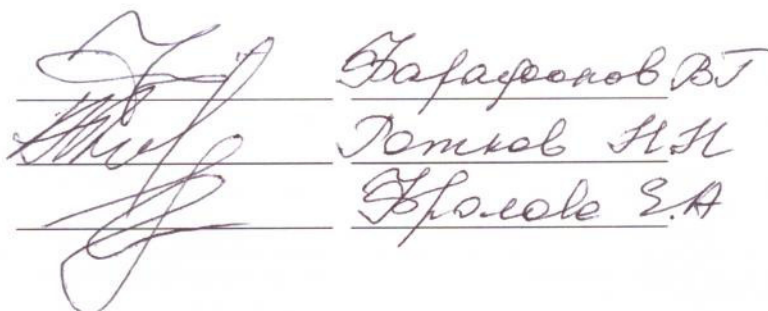 Фарафонов ВГ
Готков Н.Н
Фролова Е.А